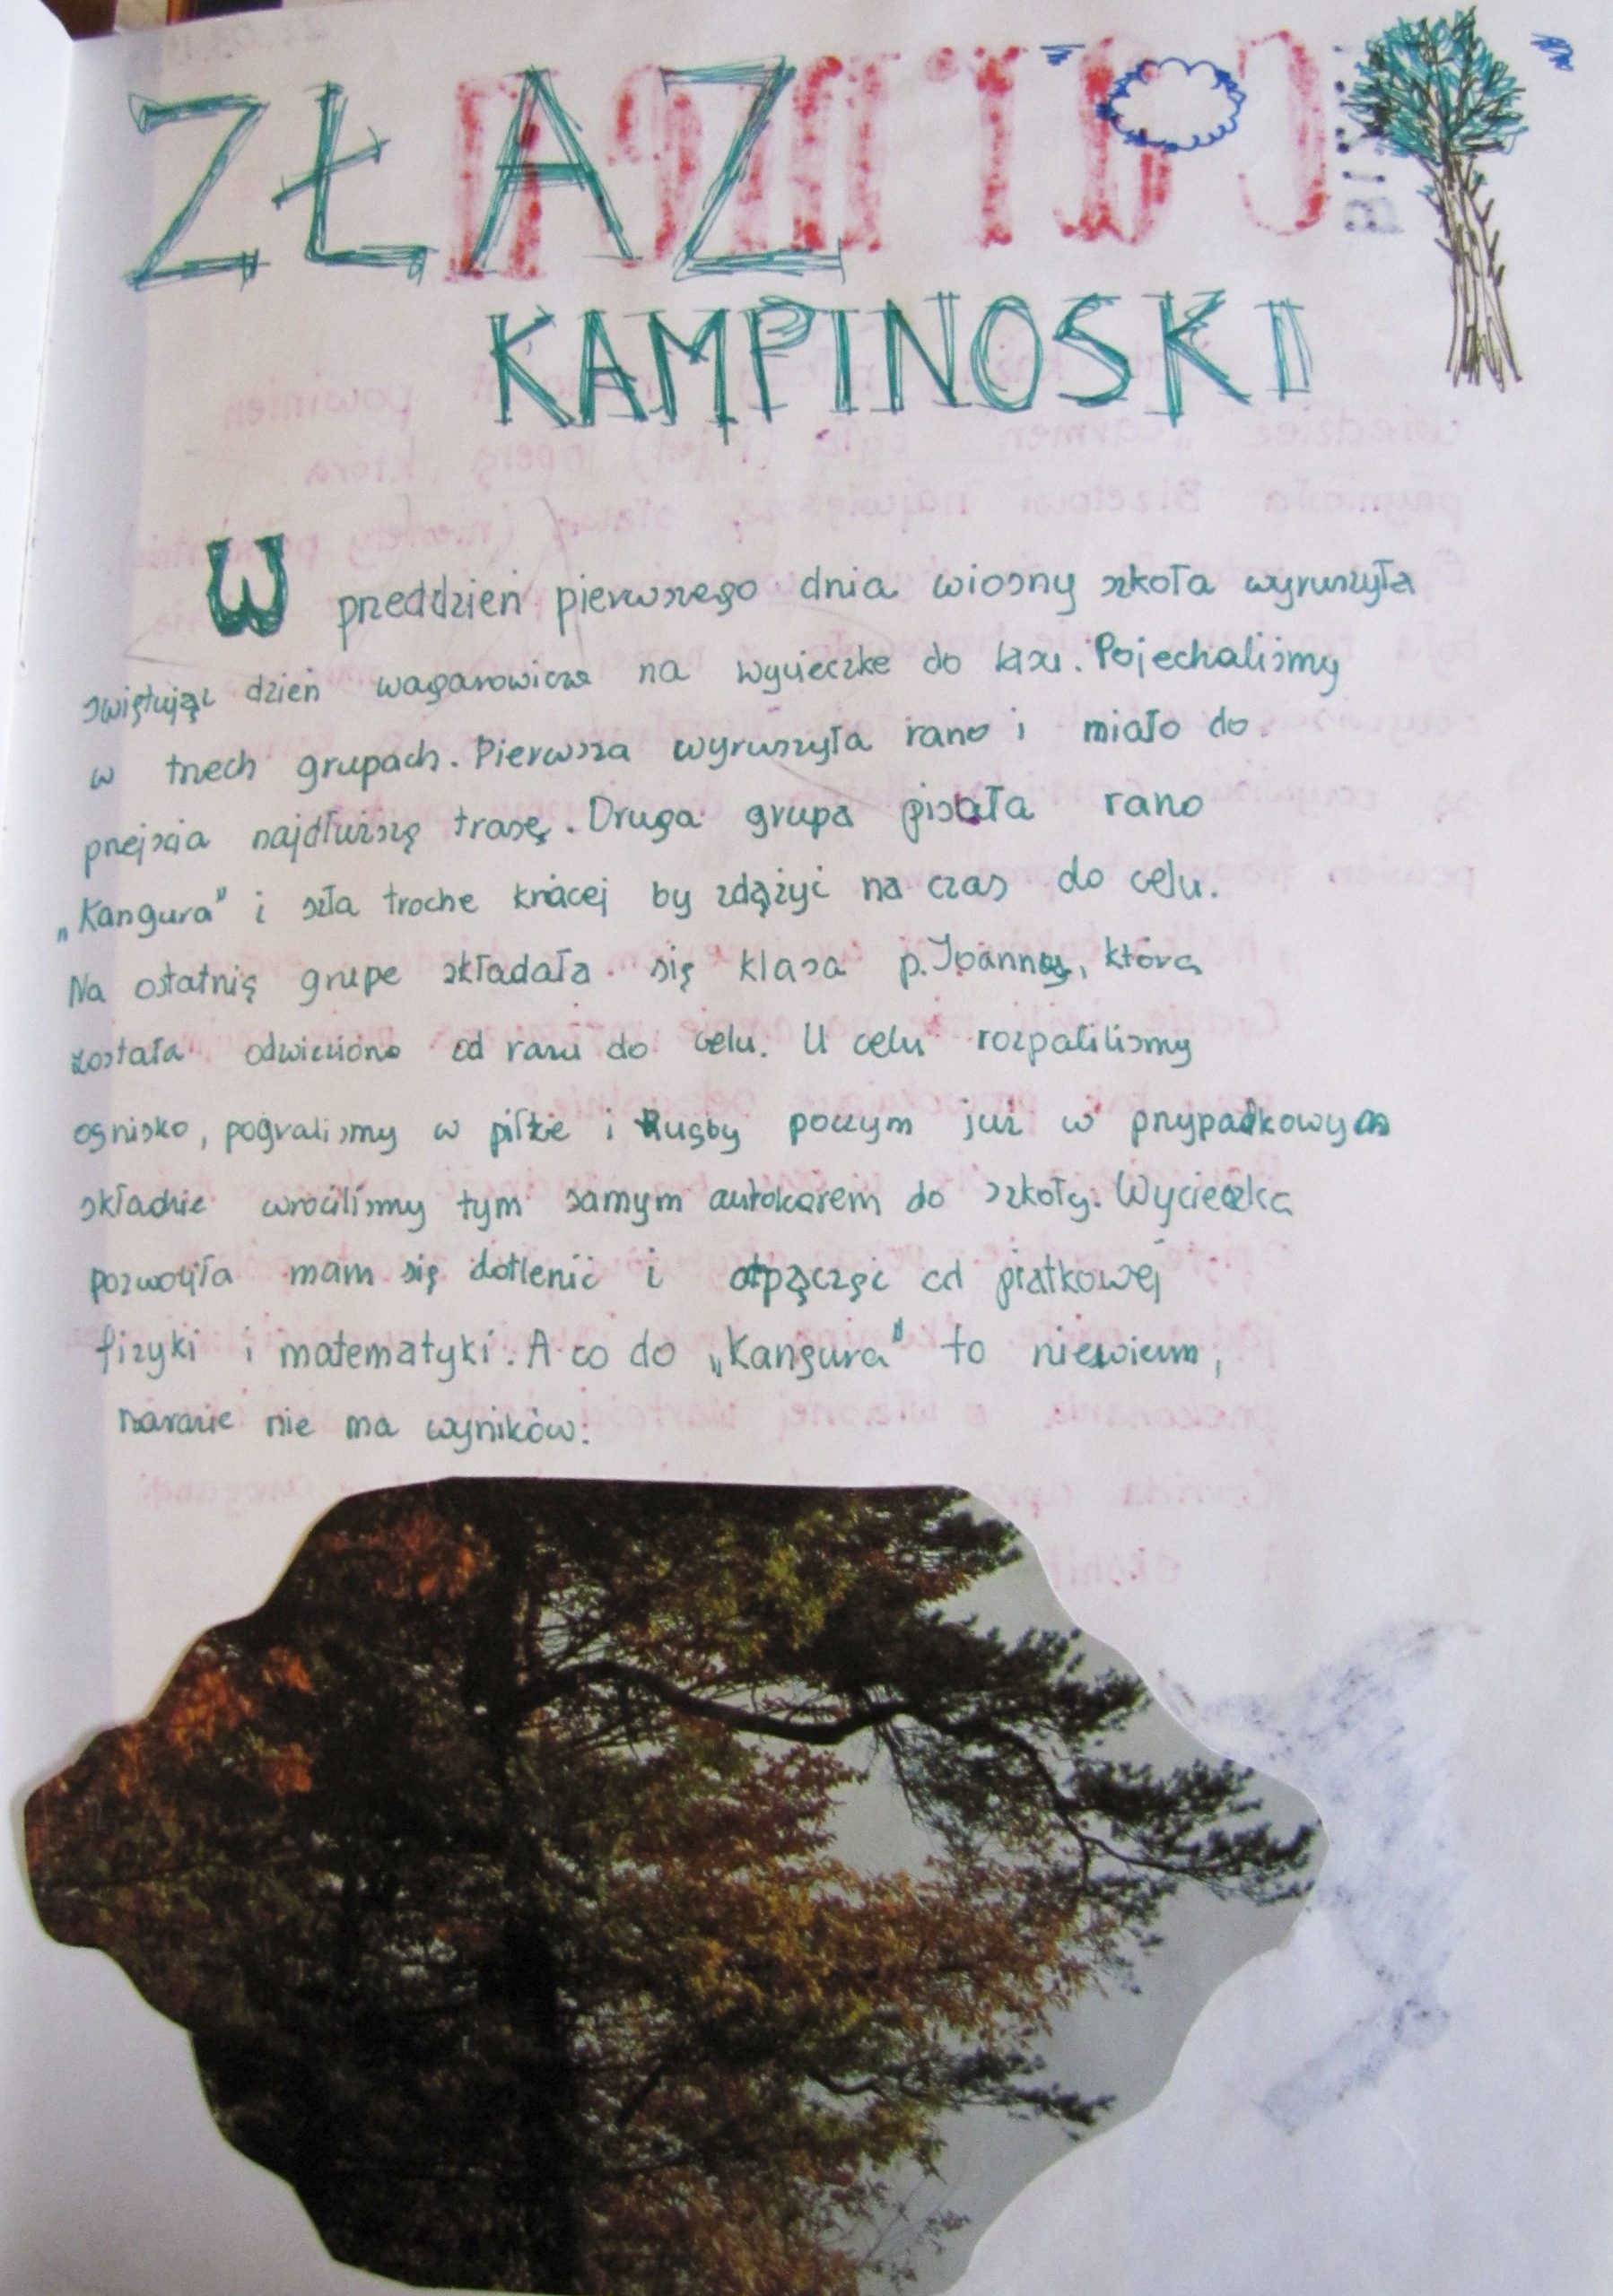 ZŁAZ
KAMPINOSKI
W przeddzień pierwszego dnia wiosny szkoła wyruszyła
świętując dzień wagarowicza na wycieczke do lasu. Pojechaliśmy
w trzech grupach. Pierwsza wyruszyła rano i miało do
przejścia najdłuższą trasę. Druga grupa pisała rano
„Kangura" i szła troche krócej by zdążyć na czas do celu.
Na ostatnią grupe składała się klasa p. Joanny, która
została odwieziona od razu do celu. U celu rozpaliliśmy
ognisko, pograliśmy w piłke i Rugby poczym już w przypadkowym
składzie wróciliśmy tym samym autokarem do szkoły. Wycieczka
pozwoliła mam się dotlenić i otpącząć od piatkowej
fizyki i matematyki. A co do „Kangura" to niewiem,
narazie nie ma wyników.